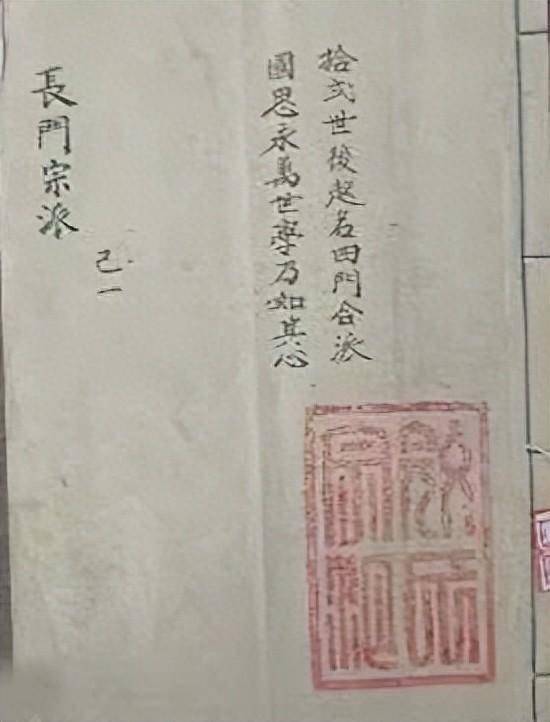 拾弍世後起名四門合派
國恩永萬世學乃如其心
長門宗派
己一